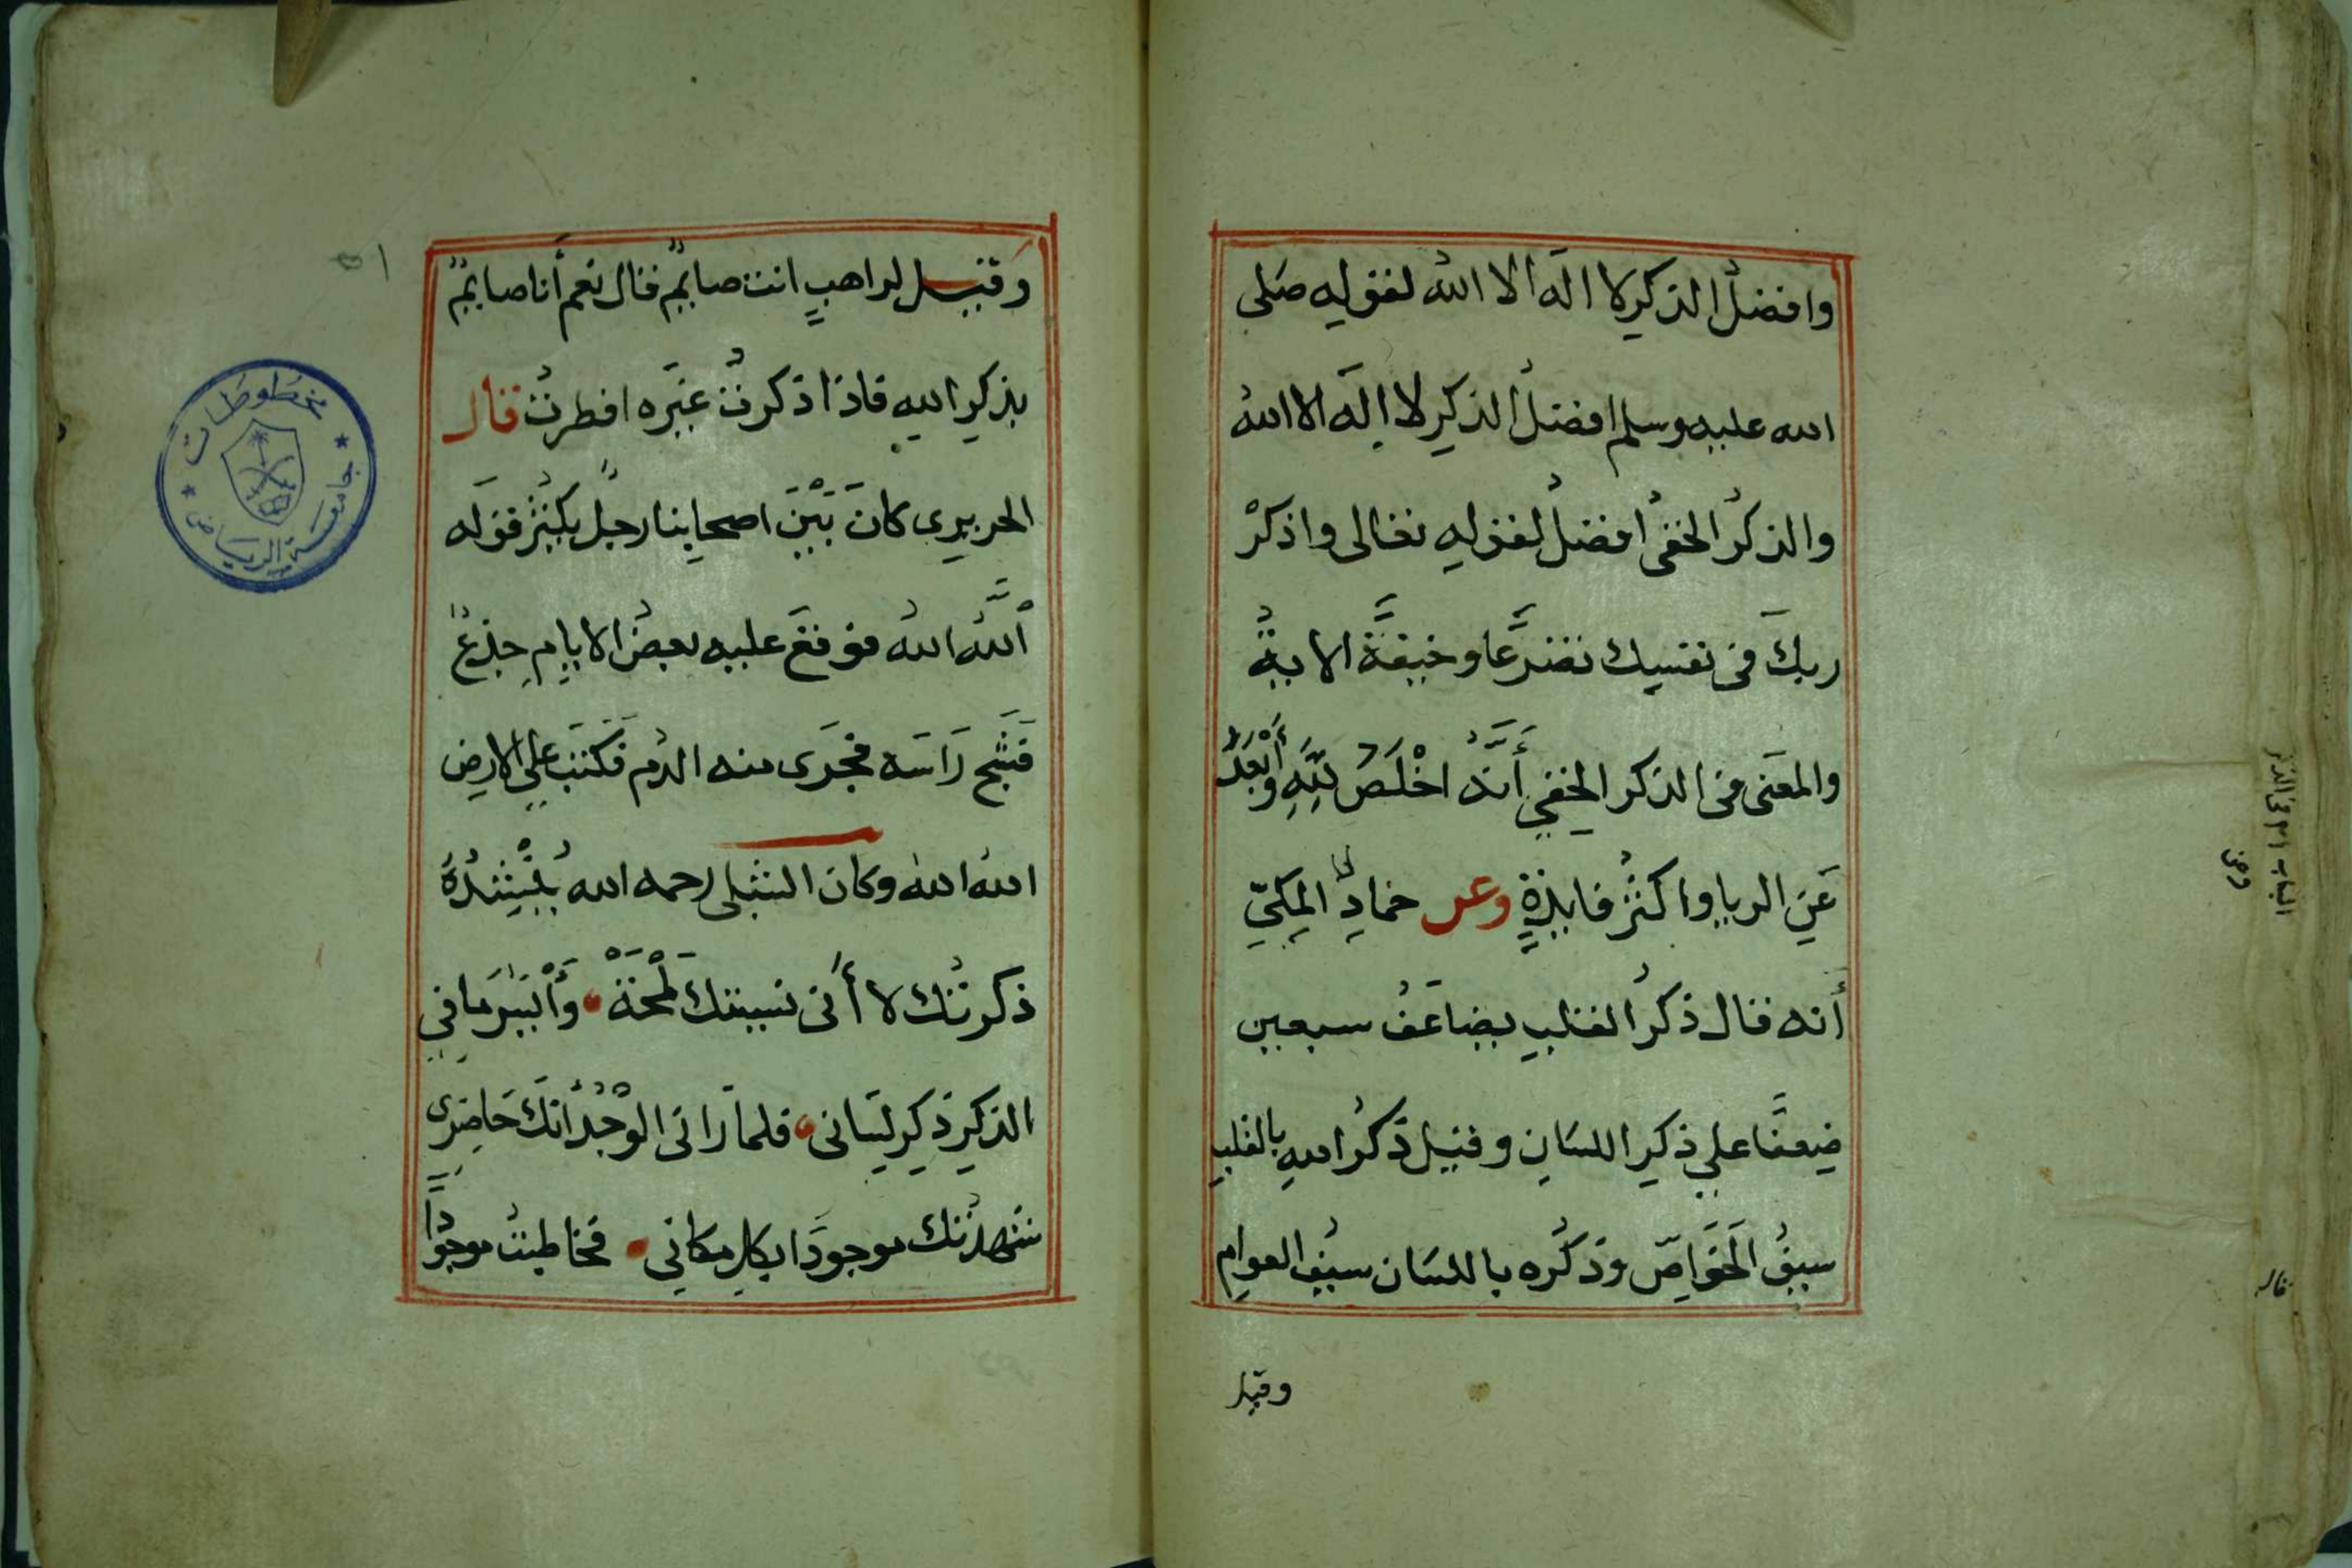 وافضلُ الذكرِ لا الَه الا اللهُ لقولِه صَلى
الله عليه وسلم افضلُ الذكرِ لا إلَه الا اللهُ
والذكرُ الخفىُ افضلُ لقولِه تعالى واذكرْ
ربكَ فى نفسِك تضرُّعًا وخيفةً الايةُ
والمعَنى فى الذكر الخفىِ أَنَّهُ اخْلَصُ لِلَّهِ وأَبْعَدُ
عَنِ الريا واكثرُ فايدةٍ وعن حمادٍ المكىِّ
أنه قال ذكرُ القلبِ يضاعَفُ سبعين
ضِعفًا على ذكرِ اللسَانِ وقيل ذكرُ اللهِ بالقلبِ
سيفُ الخَوَاصِّ وذكُره باللسَان سيفُ العوامِ
وقيل
وقيل لراهبٍ انت صايمٌ فقال نعم أنا صايمٌ
بذكرِ اللهِ فاذا ذكرتُ غيَره افطرتُ قال
الحريرى كانَ بَيْنَ اصحابِنا رجلٌ يكثرُ قولَه
اَللَّهُ اللهُ فوقعَ عليه بعضُ الايامِ جِذعٌ
فَشَجَّ رَاسَه فجَرَى منه الدم فكتبَ على الارضِ
اللهُ اللهُ وكان الشبلى رحمه الله يُنْشِدُهُ
ذكرتُك لا أنى نسيتك لَمْحَةً وأَيْسَرُ ما فى
الذكرِ ذكرِ لسَانى فلما رَانى الوُجْدُ انكَ حَاضِرِى
شهدتُك موجودًا بكلِ مكانىِ فخاطبتُ موجودًا
مخطوطات
جامعة الرياض
الباب
فى الذكر
قال